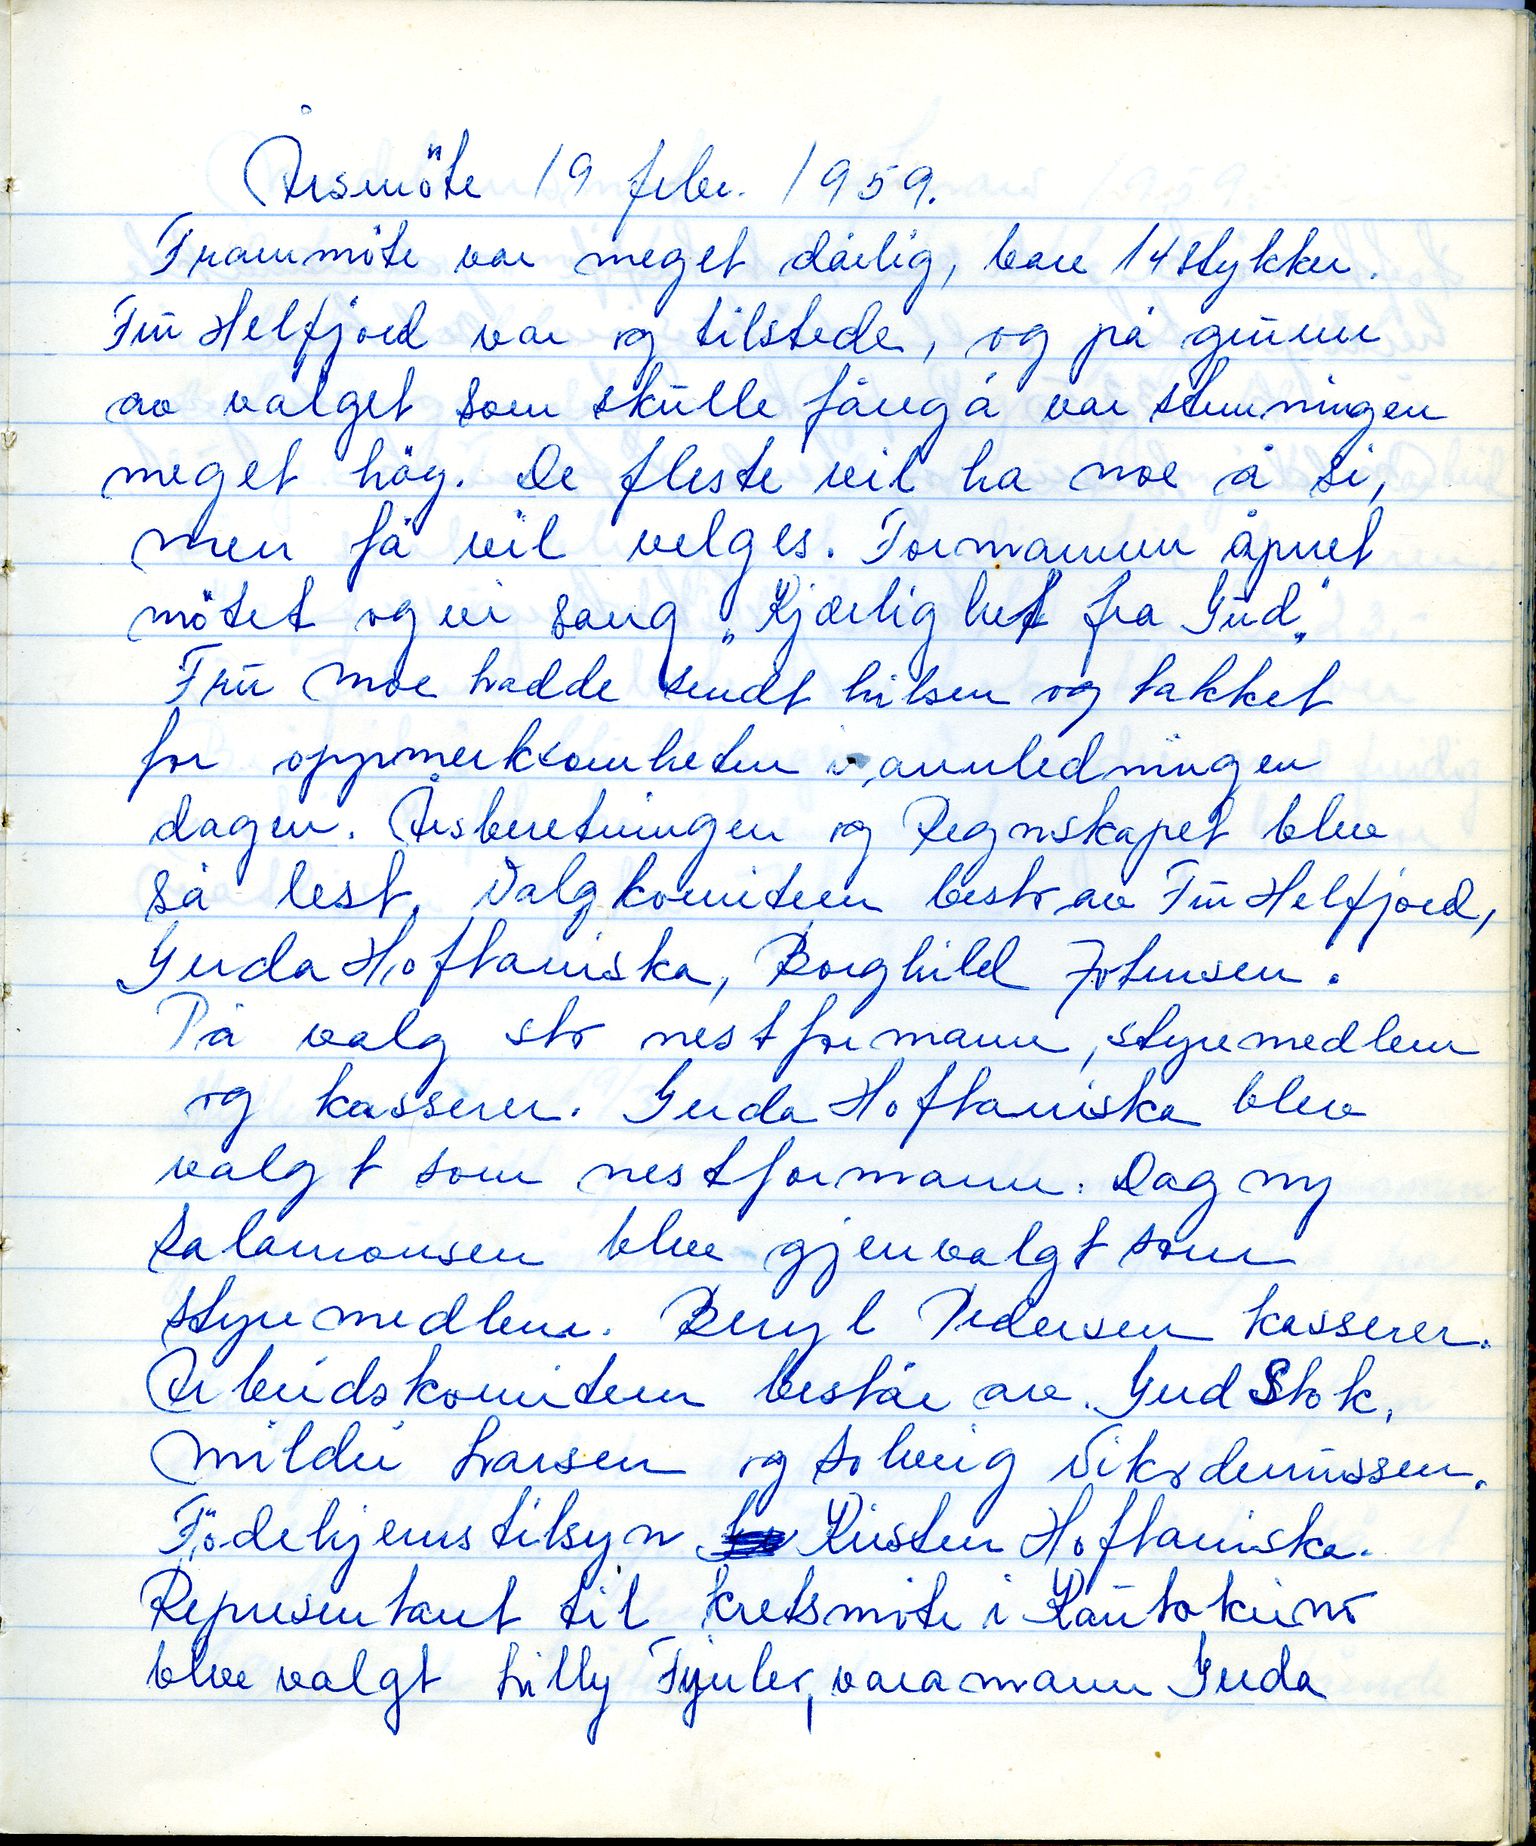 Årsmöte 19 febr. 1959.
Frammöte var meget dårlig, bare 14 stykker.
Fru Helfjord var og tilstede, og på grunn
av valget som skulle fåregå var stemningen
meget høg. De fleste vil ha noe å si,
men få vil velges. Formannen åpnet
mötet og vi sang „Kjærlighet fra Gud"
Fru Moe hadde sendt hilsen og takket
for oppmerksomheten i annledningen
dagen. Årsberetningen og Regnskapet blev
så lest. Valgkomiteen besto av Fru Helfjord,
Gerda Hoftaniska, Borghild Johnsen.
På valg sto nestformann, styremedlem
og kasserer. Gerda Hoftaniska blev
valgt som nestformann. Dagny
Salamonsen blev gjenvalgt som
styremedlem. Beryl Pedersen kasserer.
Arbeidskomiteen består av Gerd Stok,
Mildri Larsen og Solveig Nikodemussen.
Födehjemstilsyn Kirsten Hoftaniska.
Representant til kretsmöte i Kautokeino
blev valgt Lilly varamann Gerda